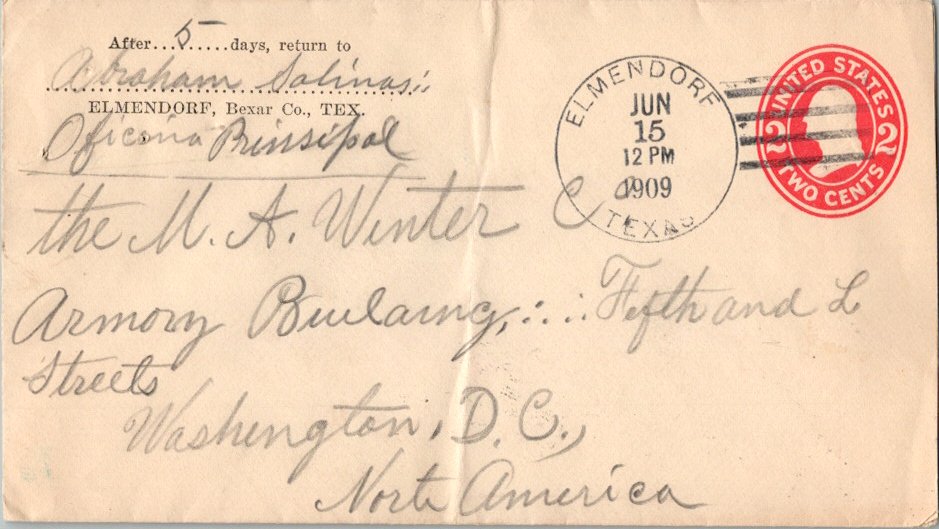 After...5.....days, return to
Abraham Salinas
ELMENDORF, Bexar Co., TEX.
Oficina Prinsipal
ELMENDORF
JUN
15
12 PM
1909
TEXAS
UNITED STATES
2 2
TWO CENTS
the M. A. Winter Co
Armory Builaing, Fifth and L
Streets
Washengton, D.C.,
North America